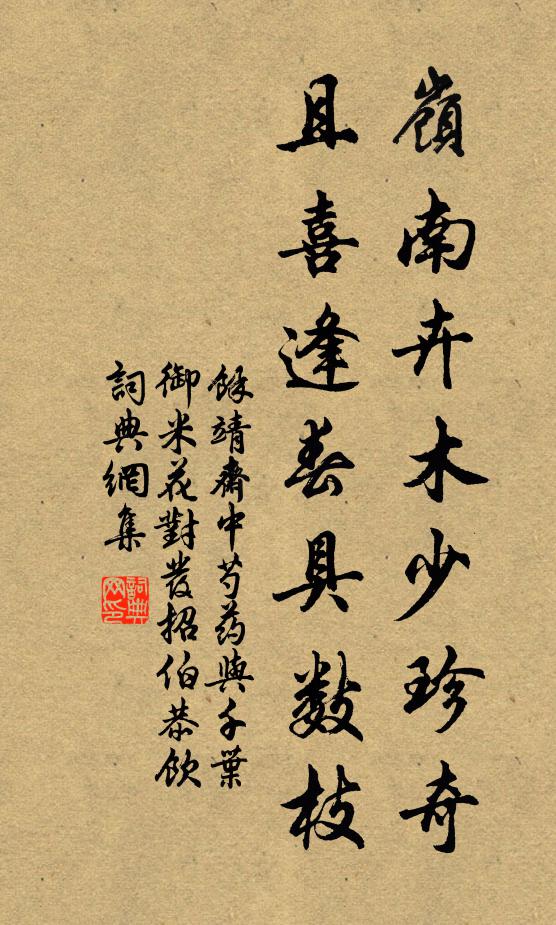 嶺南卉木少珍奇
且喜逢春具數枝
餘靖齋中芍藥與千葉
御米花對發招伯恭飲
詞典網集
詞典
网印